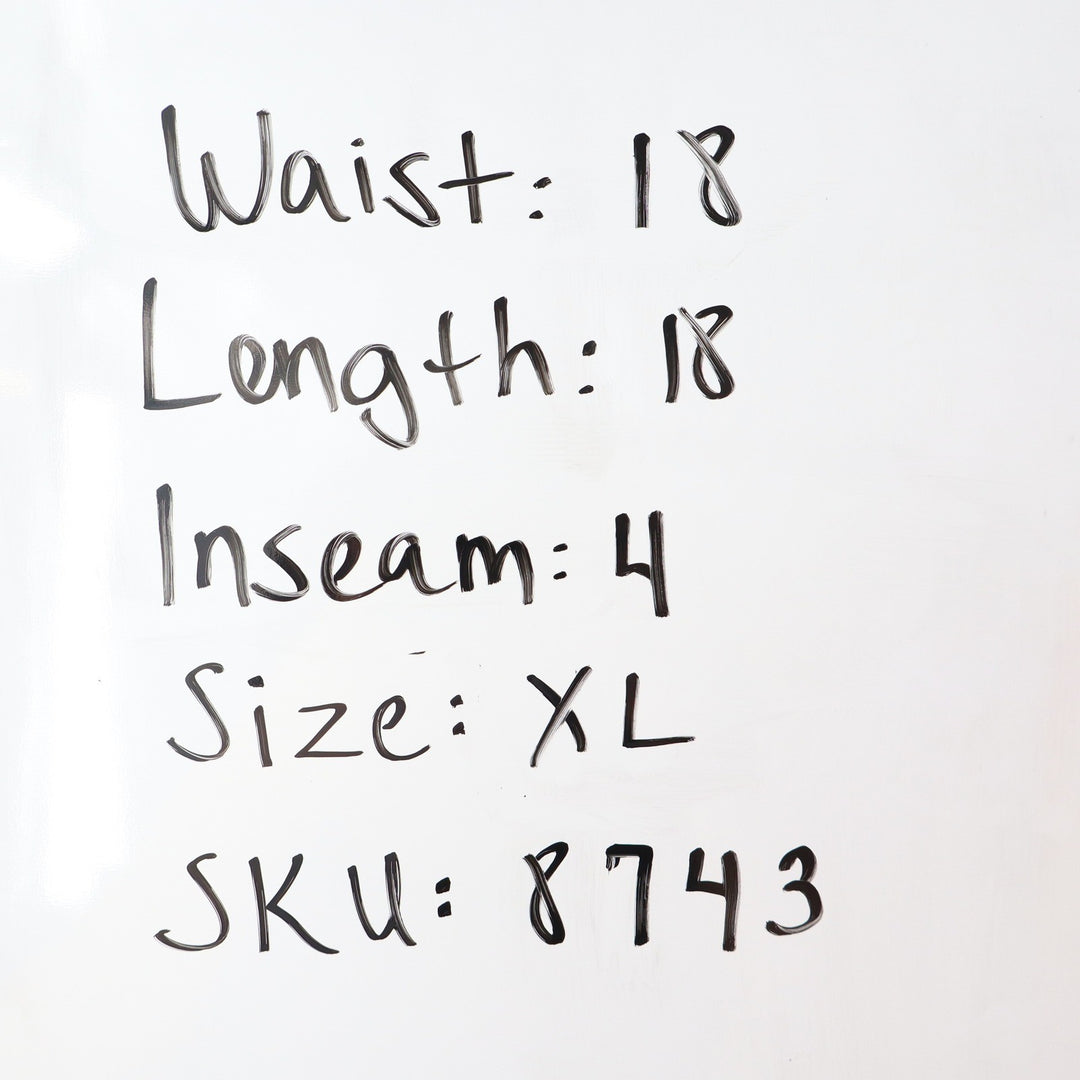 Waist: 18
Length: 18
Inseam: 4
Size: XL
SKU: 8743